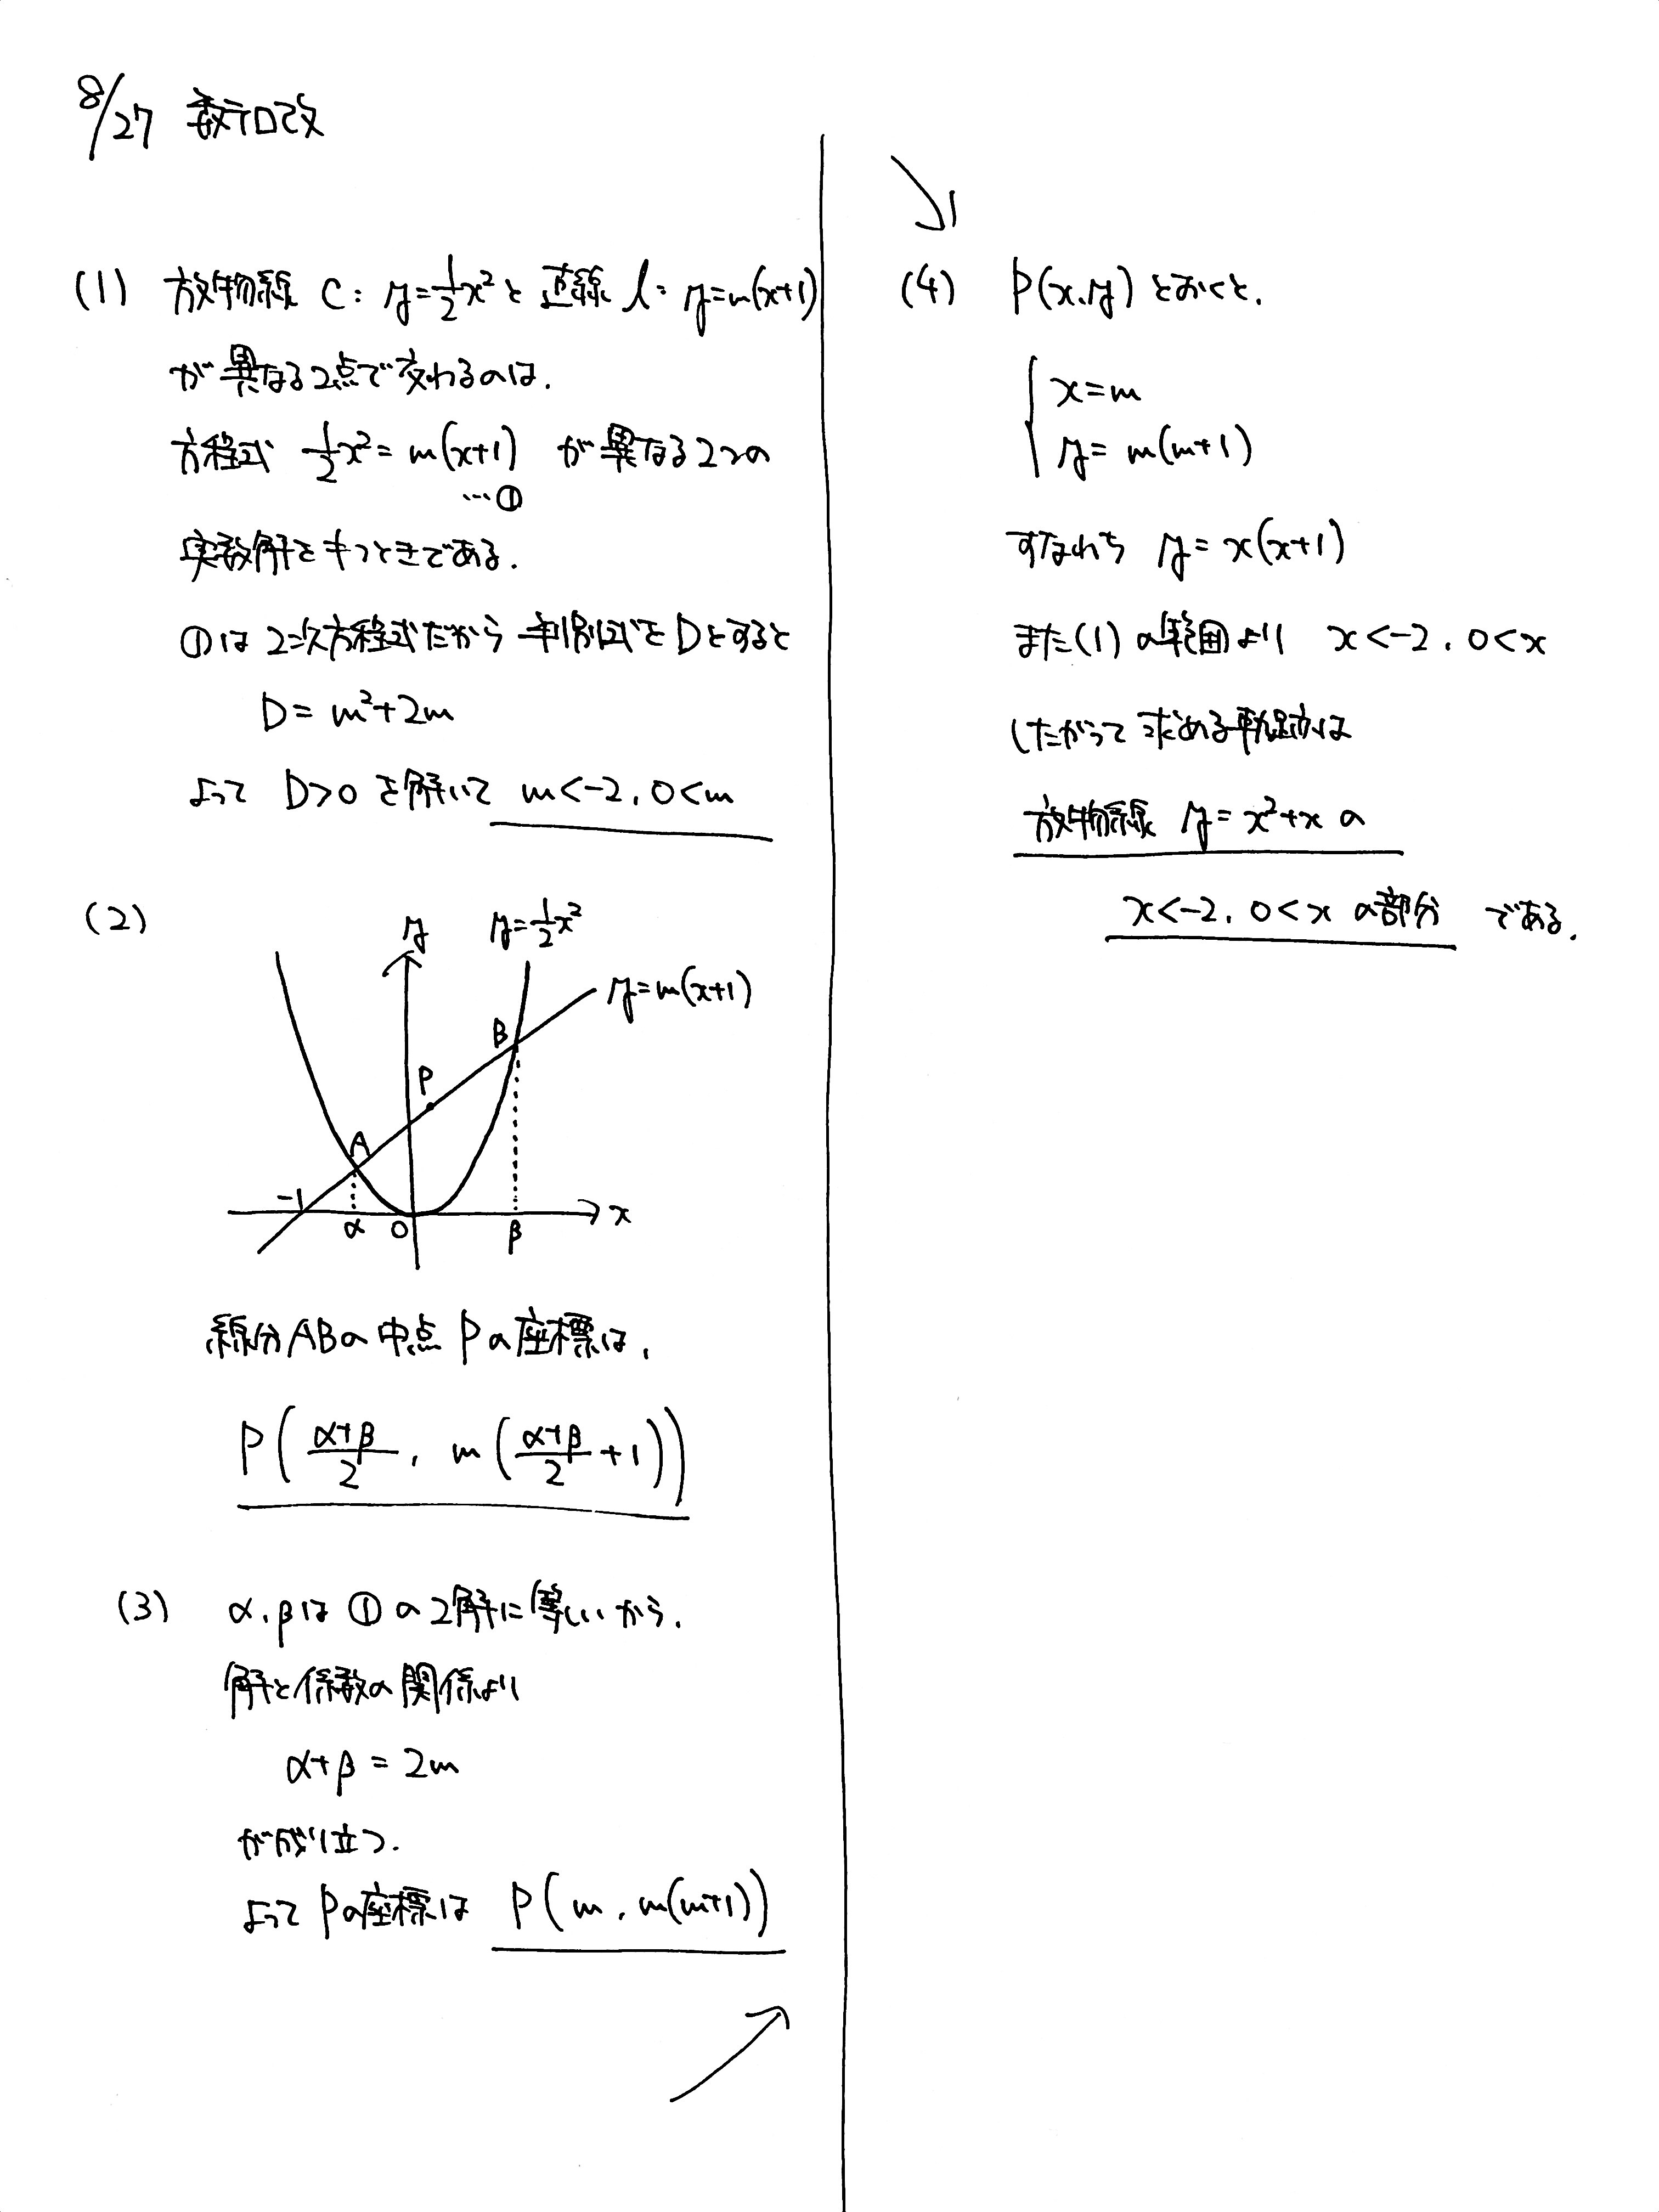 8/27 数テロ改
(1) 放物線 C: y=1/2x² と 直線 l: y=m(x+1)
が異なる2点で交わるのは.
方程式 1/2x²= m(x+1) が異なる2つの
…①
実数解をもつときである.
①は2次方程式だから 判別式をDとすると
D= m²+2m
よって D>0 を解いて m<-2, 0<m
(2)
y y=1/2x²
y=m(x+1)
B
P
A
-1 α O β x
線分ABの中点Pの座標は,
P(α+β/2, m(α+β/2+1))
(3) α,βは①の2解に等しいから.
解と係数の関係より
α+β=2m
が成り立つ.
よってPの座標は P(m, m(m+1))
(4) P(x,y)とおくと.
x=m
y=m(m+1)
すなわち y=x(x+1)
また(1)の範囲より x<-2, 0<x
したがって求める軌跡は
放物線 y=x²+x の
x<-2, 0<x の部分 である.